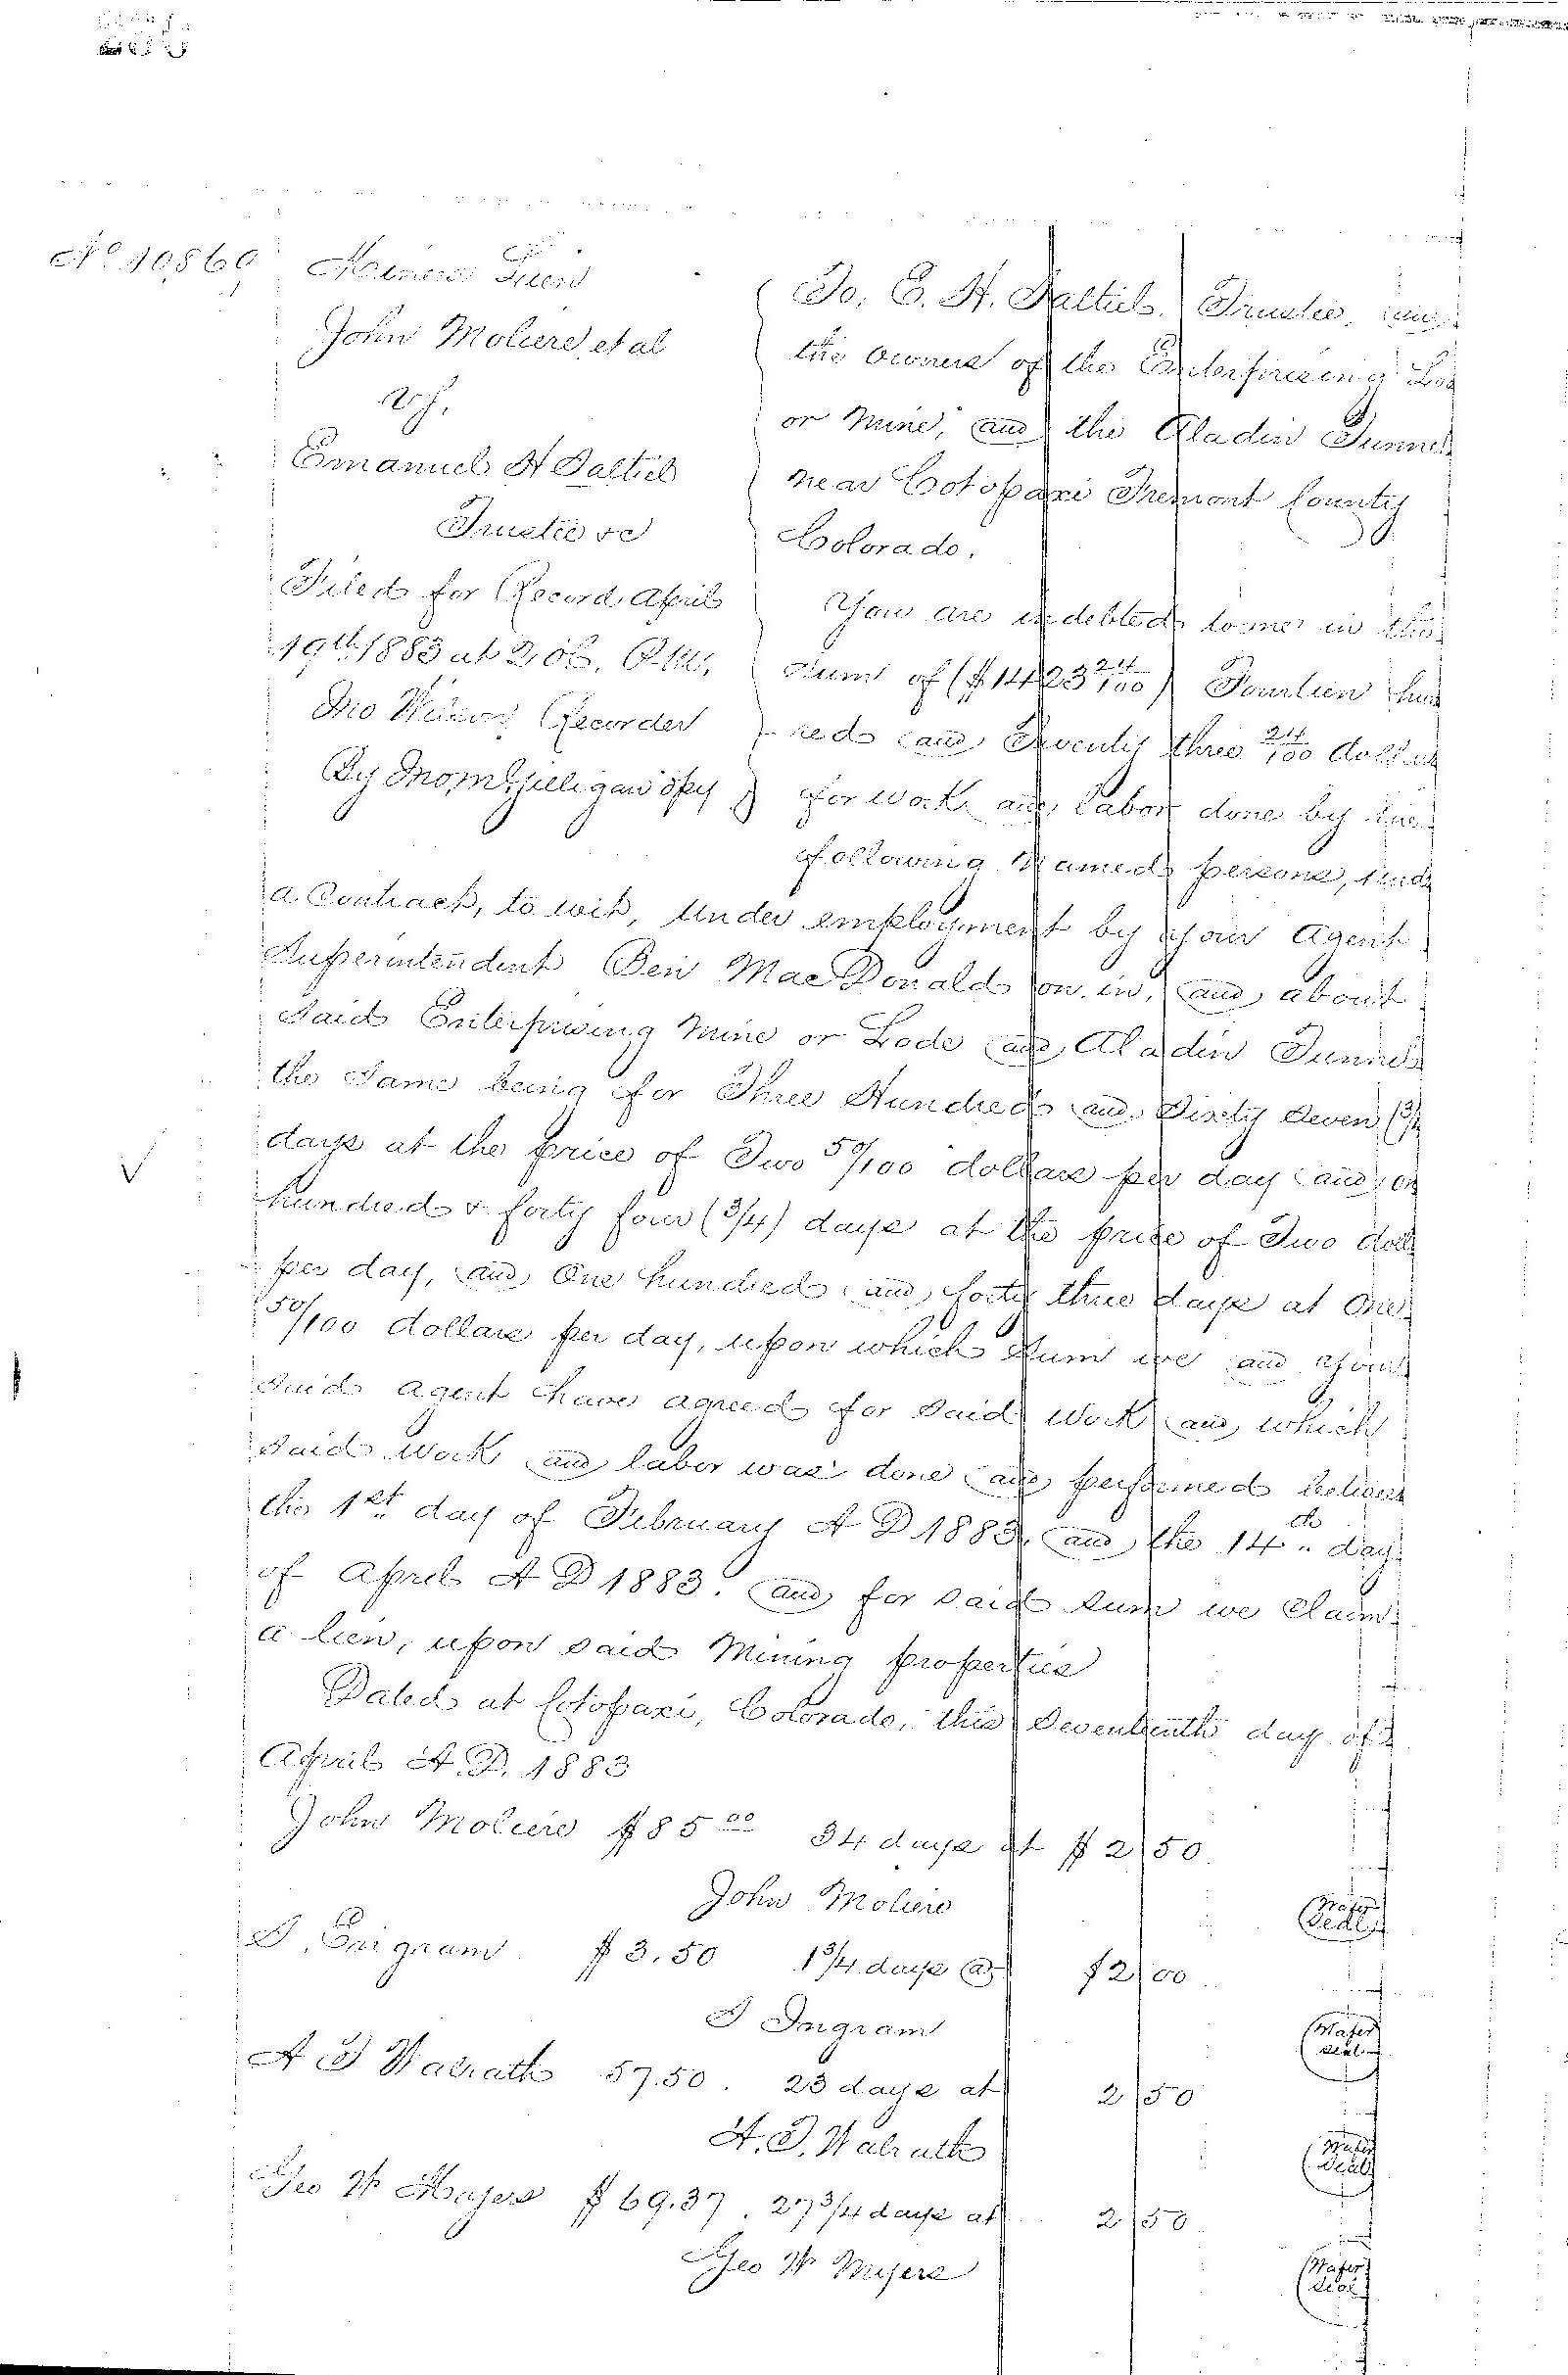 No 10,869
Miners Lien
John Moliere, et al
vs.
Emanuel H Saltiel
Trustee &c
Filed for Record April
19th 1883 at 2, oC, P.M.
Jno Wilson Recorder
By Thom Gilligan Dpy
To, E. H. Saltiel, Trustee, and
the owners of the Enterprising Lod
or Mine, and the Aladin Tunnel
near Cotopaxi Fremont County
Colorado.
You are indebted to me in the
sum of ($1423 24/100) Fourteen hun
red and Seventy three 24/100 dollars
for work and labor done by the
following named persons, und
a Contract, to wit, Under employment by your Agent
Superintendent Ben MacDonald on, in, and about
said Enterprising Mine or Lode and Aladin Tunnel
the same being for Three Hundred and Sixty Seven (3/4
days at the price of Two 50/100 dollars per day and on
hundred & forty four (3/4) days at the price of Two doll
per day, and One hundred and forty three days at One
50/100 dollars per day, upon which sum we and your
said agent have agreed for said work and which
said work and labor was done and performed between
the 1st day of February A D 1883, and the 14th day
of April A D 1883. and for said sum we claim
a lien, upon said Mining properties
Dated at Cotopaxi, Colorado, this Seventeenth day of
April A.D. 1883
John Moliere $85 00 34 days at $2 50
John Moliere Wafer Seal
I. Engram $3.50 1 3/4 days @ $2 00
I Ingram Wafer Seal
A T Walrath 57.50. 23 days at 2 50
A. T. Walrath Wafer Seal
Geo W Mayers $69.37. 27 3/4 days at 2 50
Geo W Myers Wafer Seal